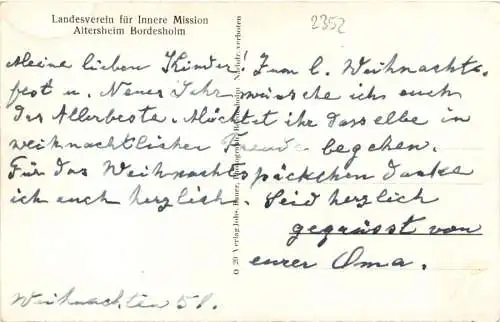 Landesverein für Innere Mission
Altersheim Bordesholm
2352
Meine lieben Kinder! Zum l. Weihnachts-
fest u. Neues Jahr wünsche ich euch
das Allerbeste. Möchtet ihr dasselbe in
weihnachtlicher Freude begehen.
Für das Weihnachtspäckchen danke
ich euch herzlich. Seid herzlich
gegrüsst von
eurer Oma.
Weihnachten 58.
O 20 Verlag Johs. Bordesholm Nachdr. verboten